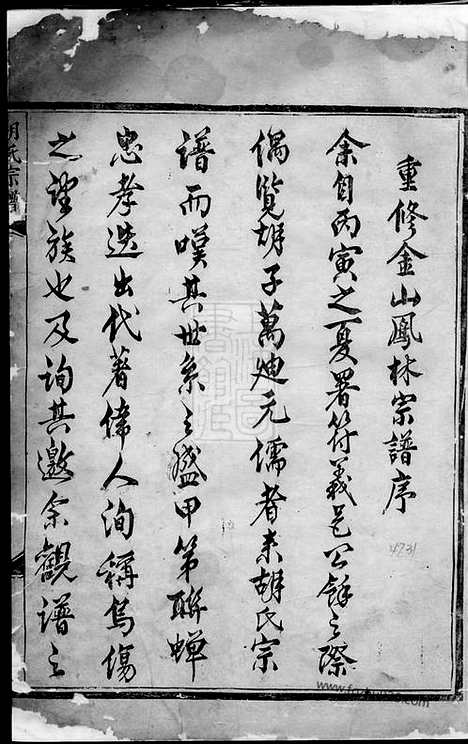 重修金山鳳林宗譜序
余自丙寅之夏署符義邑公餘之際
偶覽胡子萬迪元儒者来胡氏宗
譜而嘆其世系之盛甲第聯蟬
忠孝迭出代著偉人洵稱烏傷
之望族也及詢其邀余觀譜之
胡氏宗譜
4231